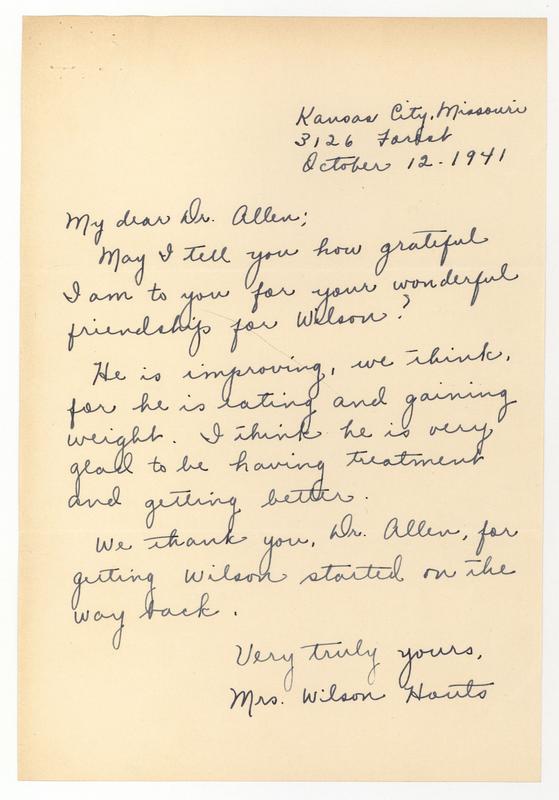 Kansas City, Missouri
3126 Forest
October 12 - 1941
My dear Dr. Allen;
May I tell you how grateful
I am to you for your wonderful
friendship for Wilson?
He is improving, we think,
for he is eating and gaining
weight. I think he is very
glad to be having treatment
and getting better.
We thank you, Dr. Allen, for
getting Wilson started on the
way back.
Very truly yours,
Mrs. Wilson Houts